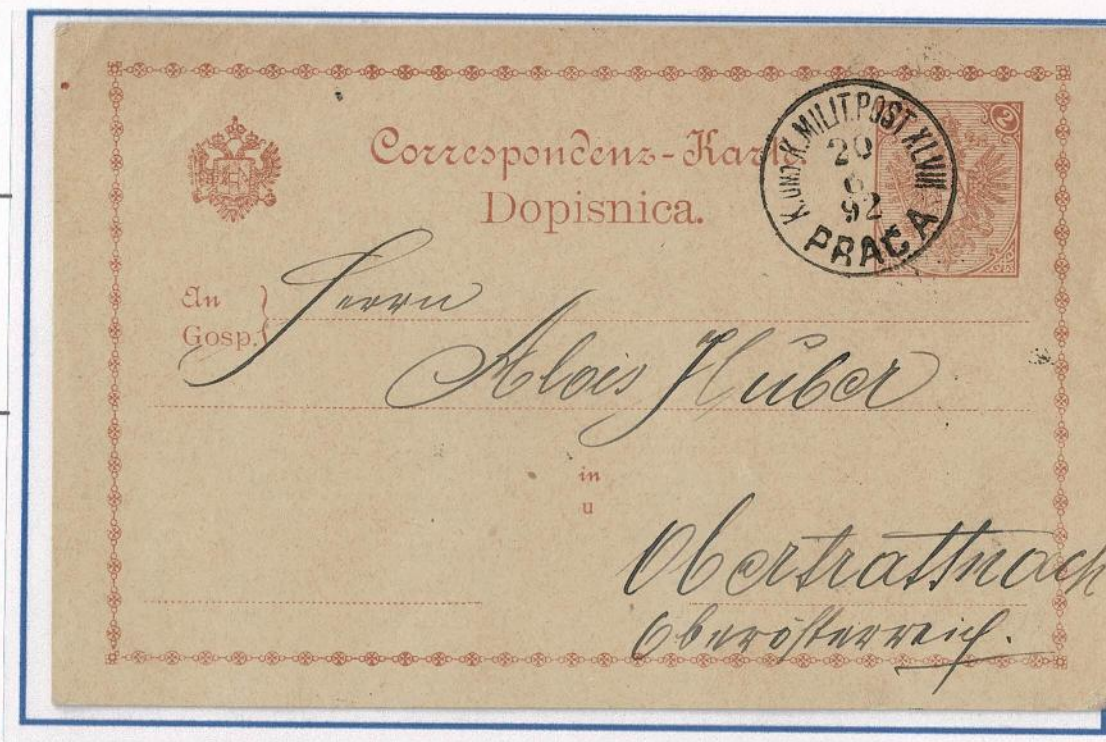 Correspondenz-Karte
Dopisnica.
2
K. UND K. MILIT. POST XLVIII
20
6
92
PRAČA
An
Gosp.
Herrn
Alois Huber
in
u
Obertrattnach
Oberösterreich.